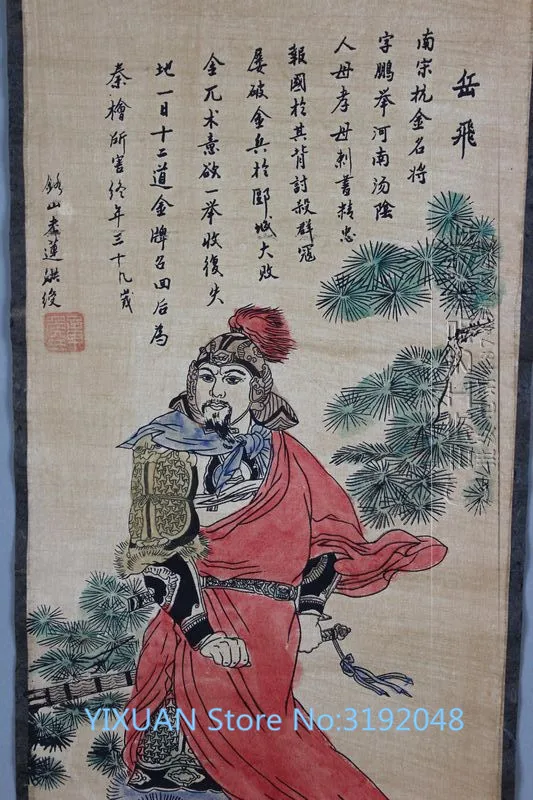 岳飛
南宋抗金名将
字鹏举河南汤陰
人母孝母刺書精忠
報國於其背討殺群冦
屡破金兵於郾城大败
金兀术意欲一举收復失
地一日十二道金牌召回后為
秦檜所害终年三十九歲
YIXUAN Store No:3192048